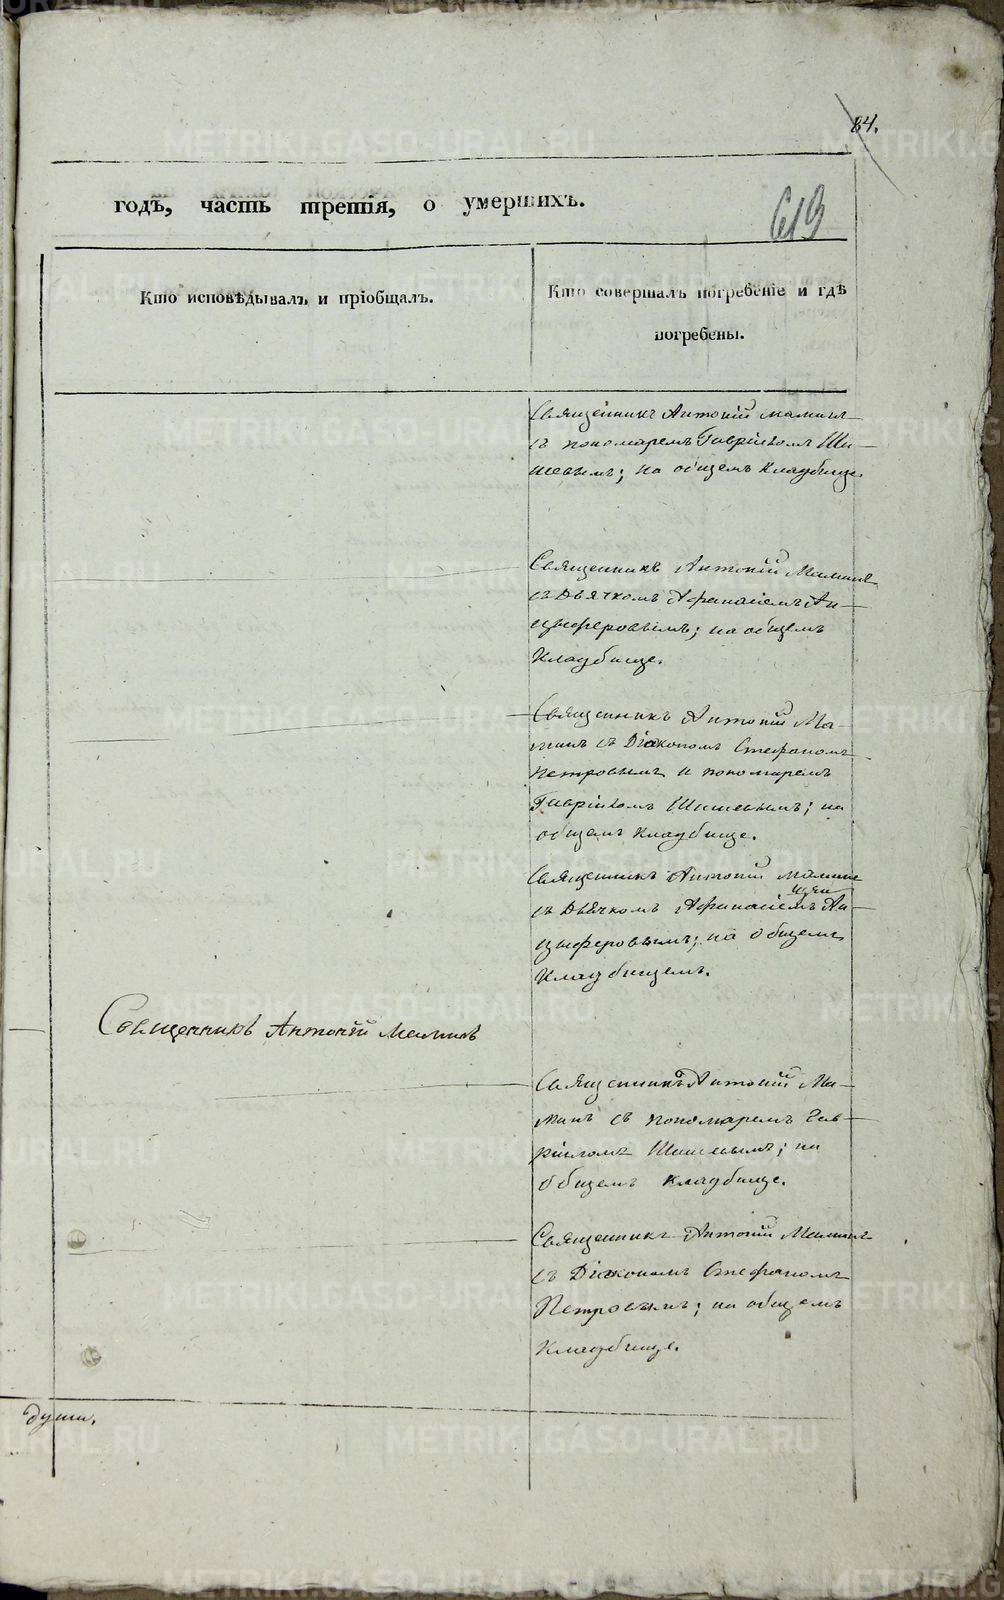 84.
годъ, часть третія, о умершихъ.
619
Кто исповѣдывалъ и пріобщалъ.
Кто совершалъ погребеніе и гдѣ
погребены.
Священникъ Антоній Маминъ
съ пономаремъ Гавріиломъ Ши-
шевымъ; на общемъ кладбище.
Священникъ Антоній Маминъ
съ Дьячкомъ Афанасіемъ Ан-
цыферовымъ; на общемъ
Кладбище.
Священникъ Антоній Ма-
минъ съ Діакономъ Стефаномъ
Петровымъ и пономаремъ
Гавріиломъ Шишевымъ; на
общемъ кладбище.
Священникъ Антоній Маминъ
съ Дьячкомъ Афанасіемъ Ан-
цыферовымъ; на общемъ
Кладбищемъ.
Священникъ Антоній Маминъ
Священникъ Антоній Ма-
минъ съ пономаремъ Гав-
ріиломъ Шишевымъ; на
общемъ кладбище.
Священникъ Антоній Маминъ
съ Діакономъ Стефаномъ
Петровымъ; на общемъ
Кладбище.
души.
METRIKI.GASO-URAL.RU